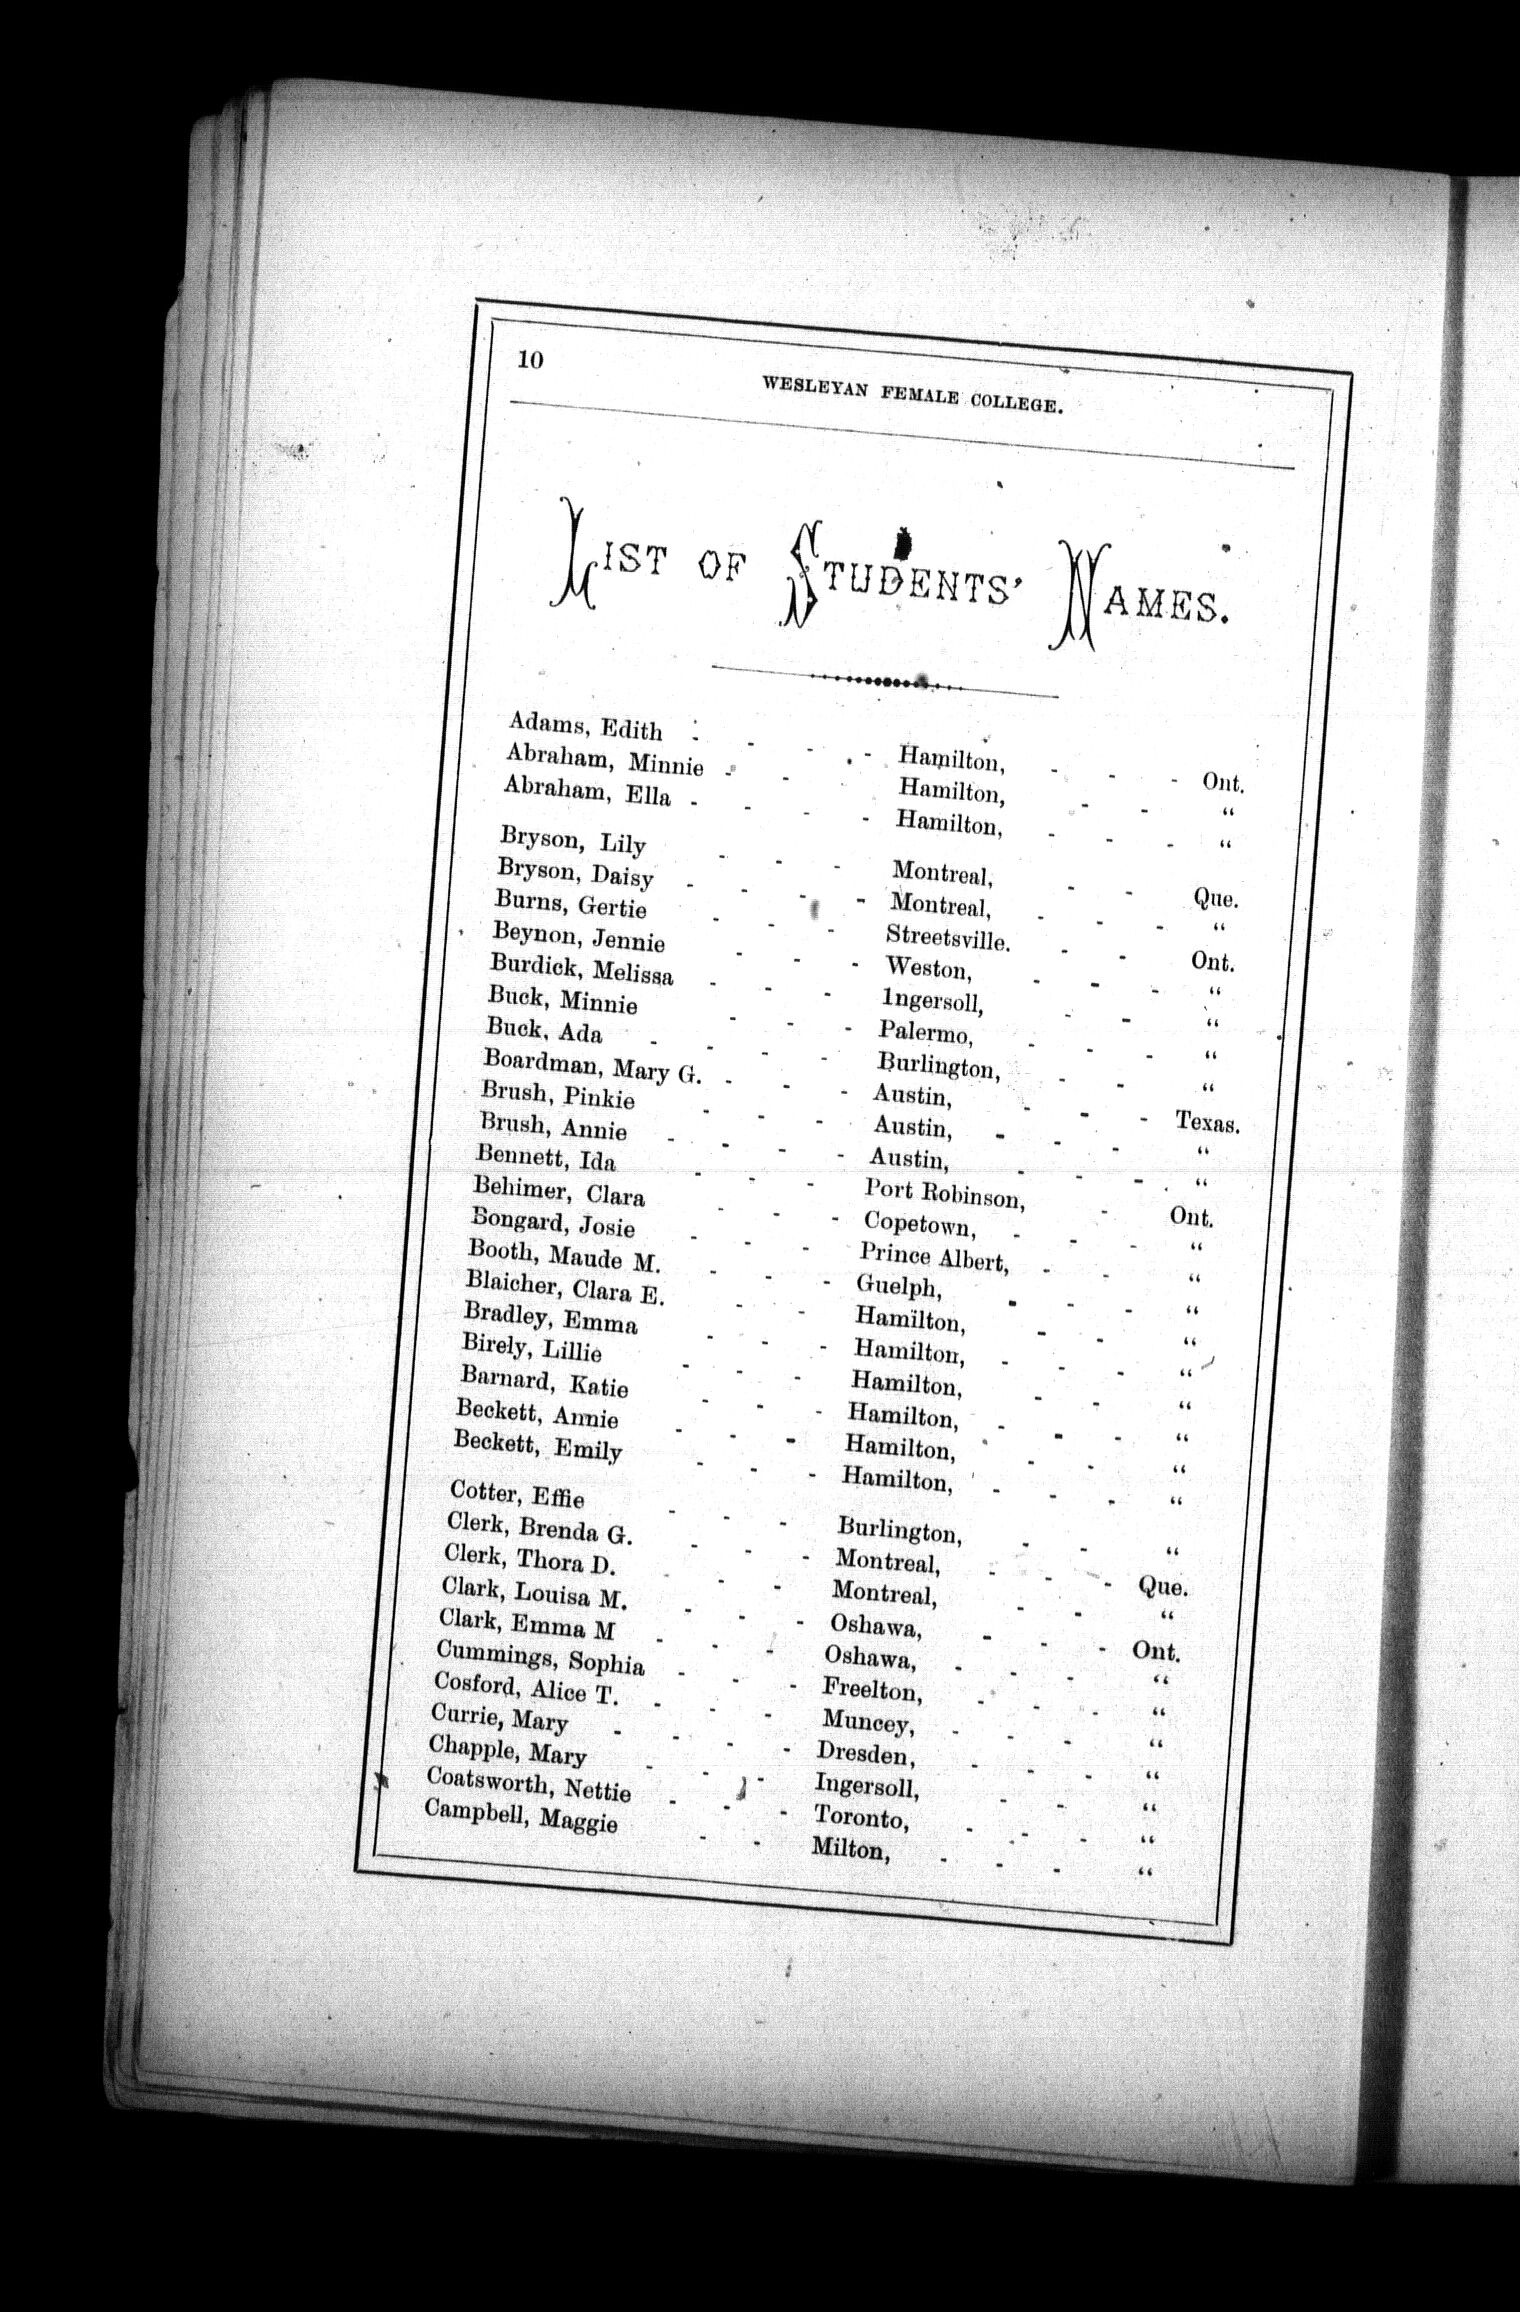 10
WESLEYAN FEMALE COLLEGE.
LIST OF STUDENTS' NAMES.
Adams, Edith - - - - Hamilton, - - - Ont.
Abraham, Minnie - - Hamilton, - - "
Abraham, Ella - - - - Hamilton, - - - "
Bryson, Lily - - - Montreal, - - Que.
Bryson, Daisy - - - - Montreal, - - - "
Burns, Gertie - - - Streetsville. - - Ont.
Beynon, Jennie - - - Weston, - - - "
Burdick, Melissa - - - Ingersoll, - - "
Buck, Minnie - - - Palermo, - - - "
Buck, Ada - - - - Burlington, - - "
Boardman, Mary G. - - - Austin, - - - Texas.
Brush, Pinkie - - - Austin, - - - "
Brush, Annie - - - - Austin, - - - "
Bennett, Ida - - - Port Robinson, - Ont.
Behimer, Clara - - - Copetown, - - - "
Bongard, Josie - - - Prince Albert, - - "
Booth, Maude M. - - - Guelph, - - - "
Blaicher, Clara E. - - Hamilton, - - "
Bradley, Emma - - - Hamilton, - - - "
Birely, Lillie - - - Hamilton, - - "
Barnard, Katie - - - Hamilton, - - - "
Beckett, Annie - - - Hamilton, - - "
Beckett, Emily - - - Hamilton, - - - "
Cotter, Effie - - - Burlington, - - "
Clerk, Brenda G. - - - Montreal, - - - Que.
Clerk, Thora D. - - - Montreal, - - "
Clark, Louisa M. - - - Oshawa, - - - Ont.
Clark, Emma M - - - Oshawa, - - - "
Cummings, Sophia - - - Freelton, - - - "
Cosford, Alice T. - - - Muncey, - - - "
Currie, Mary - - - - Dresden, - - - "
Chapple, Mary - - - Ingersoll, - - "
Coatsworth, Nettie - - - Toronto, - - - "
Campbell, Maggie - - Milton, - - - "